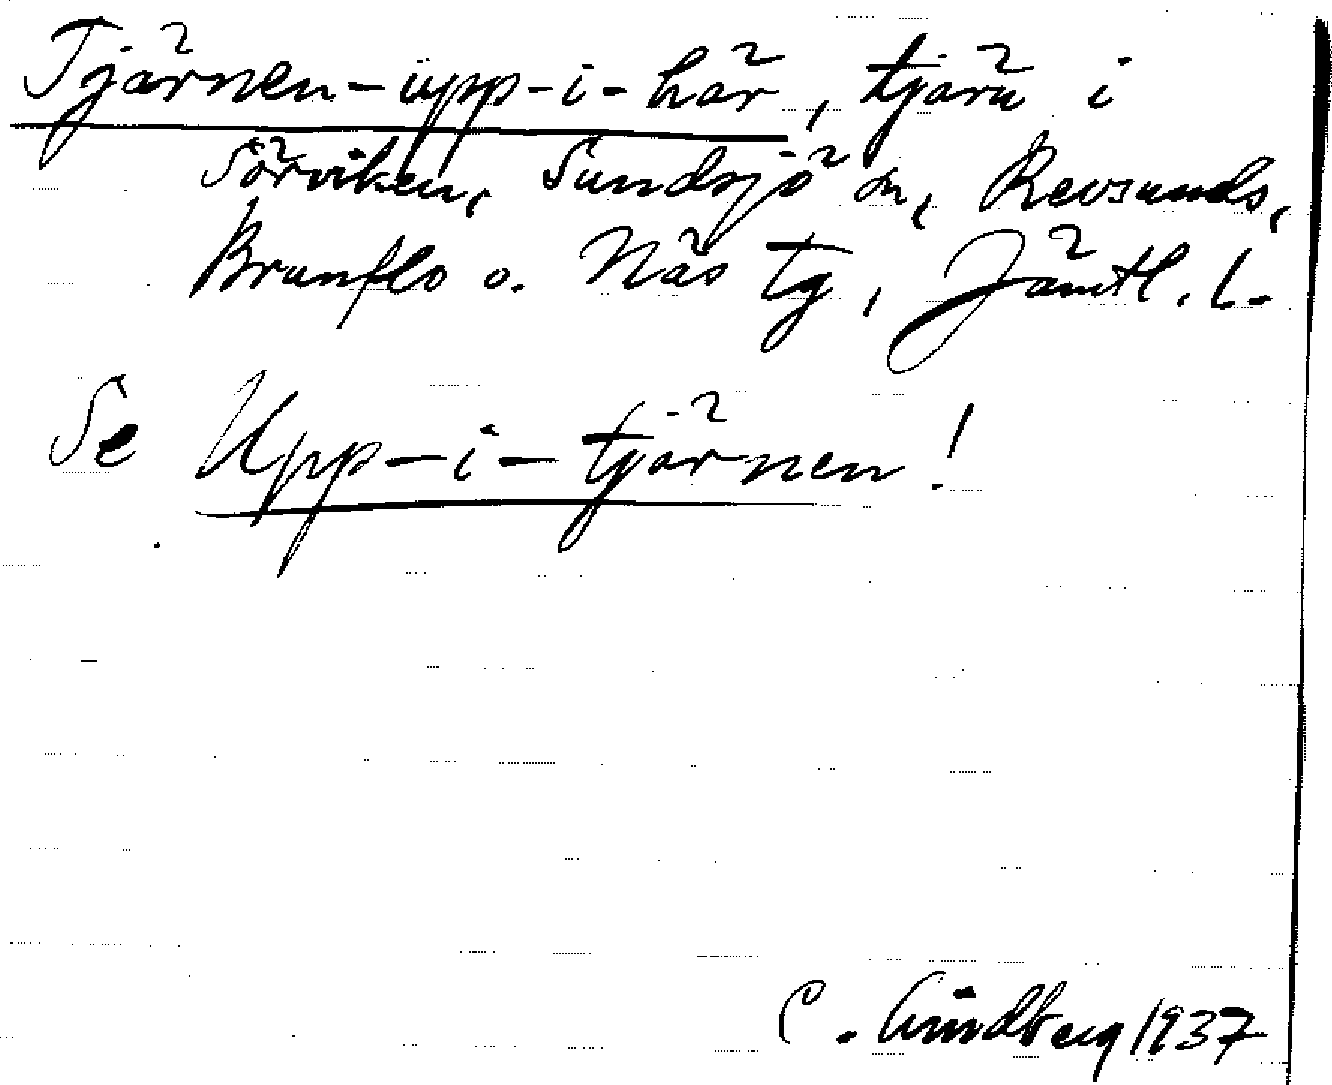 Tjärnen-upp-i-här, tjärn i
Sörviken, Sundsjö sn, Revsunds,
Brunflo o. Näs tg, Jämtl. l.
Se Upp-i-tjärnen!
C. Lindberg 1937